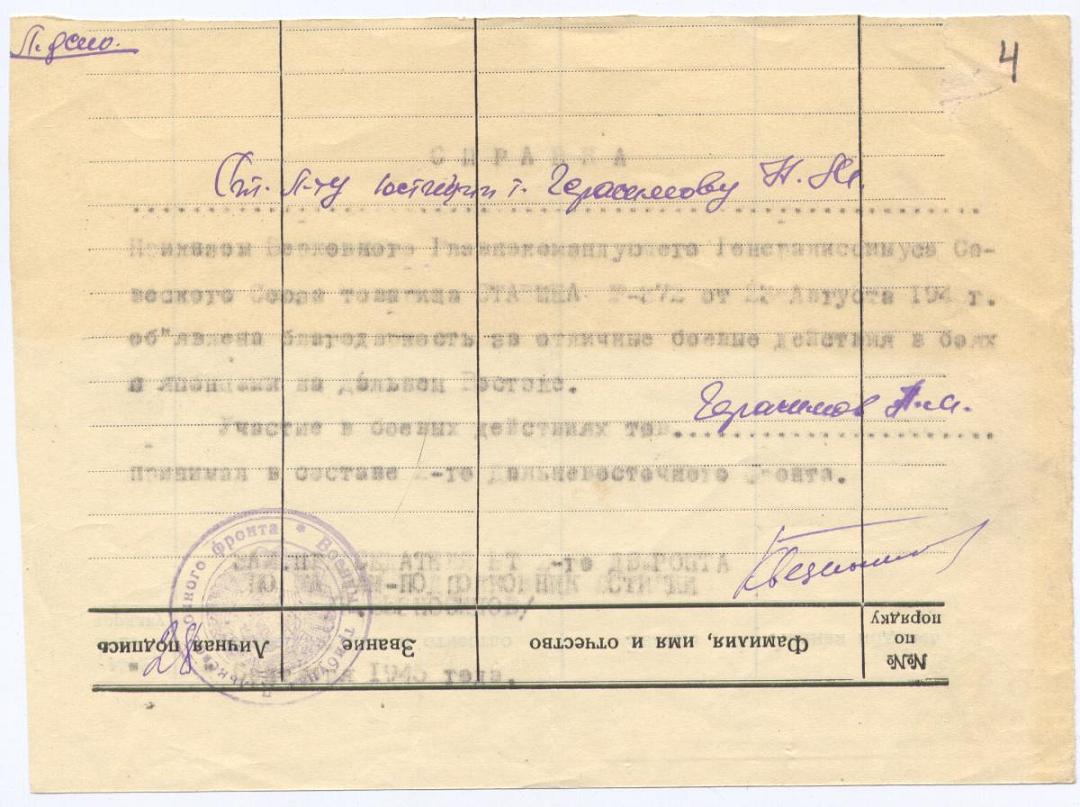 Л. дело.
4
СПРАВКА
Ст. л-ту юстиции т. Герасимову Н. М.
Приказом Верховного Главнокомандующего Генералиссимуса Со-
ветского Союза товарища СТАЛИНА от 23 Августа 1945 г.
об"явлена благодарность за отличные боевые действия в боях
с японцами на дальнем Востоке.
Герасимов Н.М.
Участие в боевых действиях тов.
принимал в составе 2-го дальневосточного Фронта.
ЗАМ. ПРЕДСЕДАТЕЛЯ ВТ 2-го ДВ.ФРОНТА
ПОДПОЛКОВНИК ЮСТИЦИИ
"28" Сентября 1945 года.
№№ по порядку
Фамилия, имя и отчество
Звание
Личная подпись
фронта * Военный трибунал